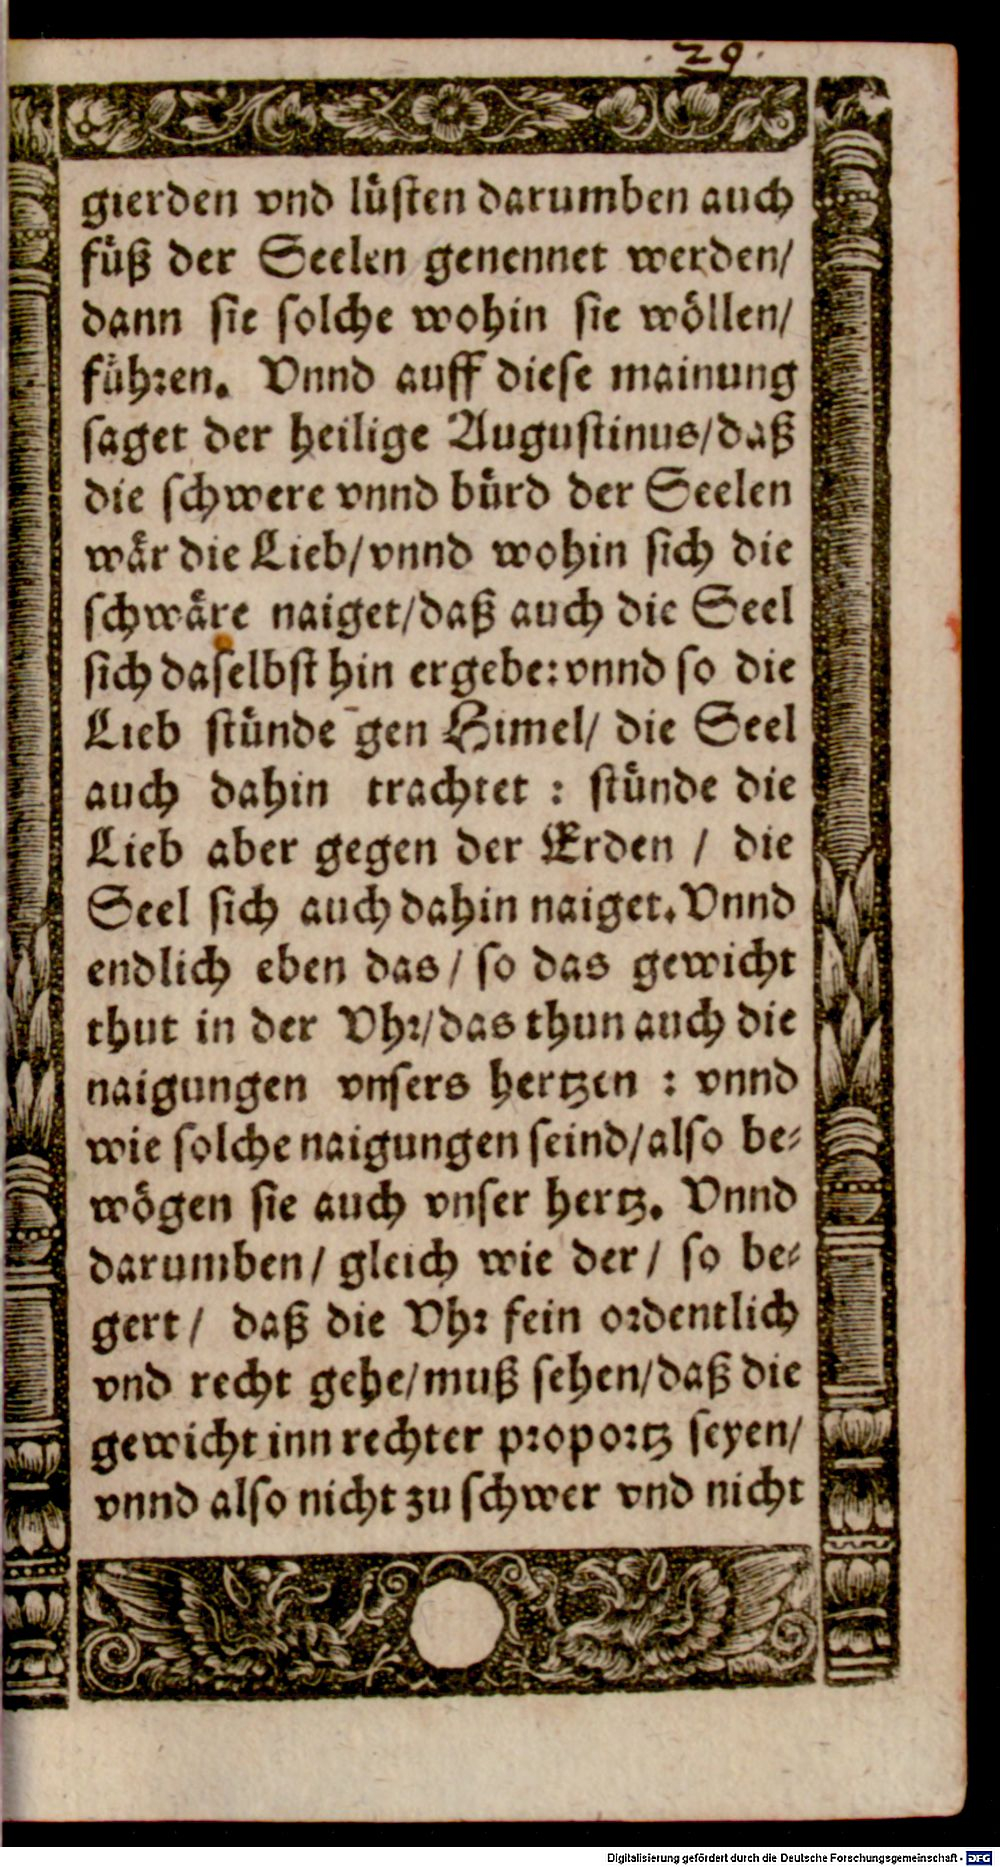 . 29 .
gierden vnd lüſten darumben auch
füß der Seelen genennet werden/
dann ſie ſolche wohin ſie wöllen/
führen. Vnnd auff dieſe mainung
ſaget der heilige Auguſtinus/daß
die ſchwere vnnd bürd der Seelen
wär die Lieb/vnnd wohin ſich die
ſchwäre naiget/daß auch die Seel
ſich daſelbſt hin ergebe: vnnd ſo die
Lieb ſtünde gen Himel/ die Seel
auch dahin trachtet : ſtünde die
Lieb aber gegen der Erden / die
Seel ſich auch dahin naiget. Vnnd
endlich eben das/ ſo das gewicht
thut in der Vhr/das thun auch die
naigungen vnſers hertzen : vnnd
wie ſolche naigungen ſeind/alſo be⸗
wögen ſie auch vnſer hertz. Vnnd
darumben/ gleich wie der/ ſo be⸗
gert/ daß die Vhr fein ordentlich
vnd recht gehe/muß ſehen/daß die
gewicht inn rechter proportz ſeyen/
vnnd alſo nicht zu ſchwer vnd nicht
Digitalisierung gefördert durch die Deutsche Forschungsgemeinschaft - DFG